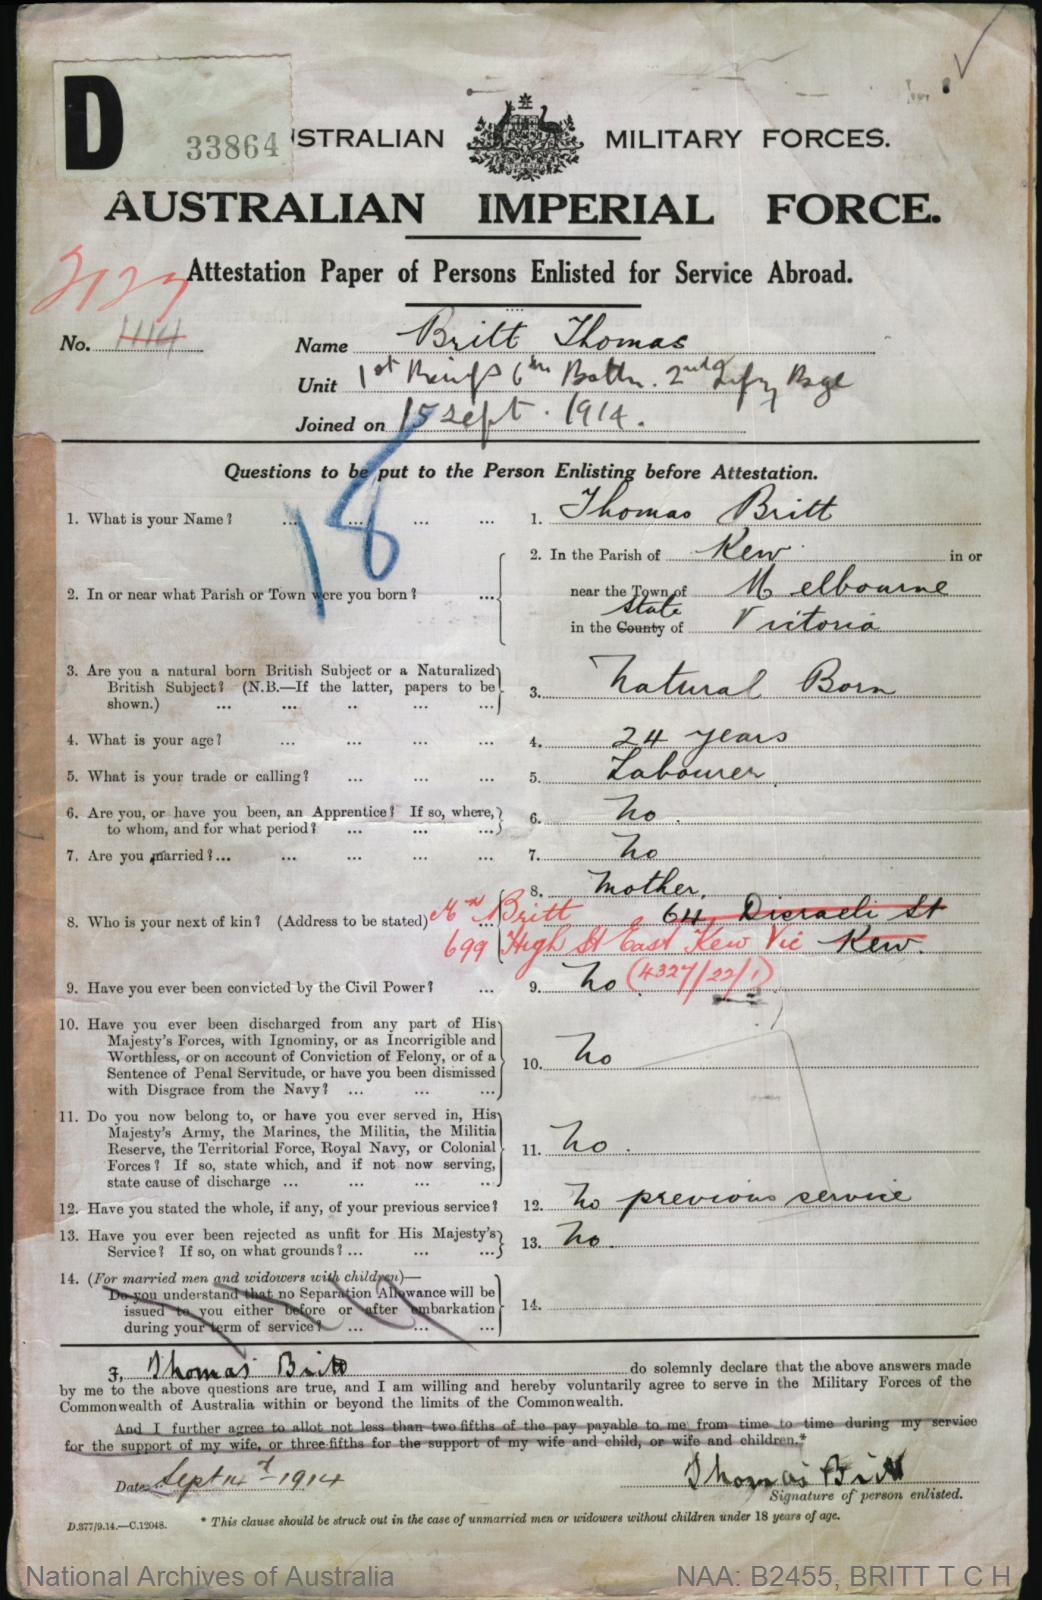 D
33864
AUSTRALIAN MILITARY FORCES.
AUSTRALIAN IMPERIAL FORCE.
Attestation Paper of Persons Enlisted for Service Abroad.
No. 1114
Name Britt Thomas
Unit 1st Reinfs 6th Battn. 2nd Infy Bge
Joined on 15 Sept. 1914.
18
Questions to be put to the Person Enlisting before Attestation.
1. What is your Name? ... ... ... ... 1. Thomas Britt
2. In or near what Parish or Town were you born? ... 2. In the Parish of Kew in or
near the Town of Melbourne
State
in the County of Victoria
3. Are you a natural born British Subject or a Naturalized
British Subject? (N.B.—If the latter, papers to be
shown.) ... ... .. ... ... 3. Natural Born
4. What is your age? ... ... ... ... 4. 24 years
5. What is your trade or calling? ... ... ... 5. Labourer
6. Are you, or have you been, an Apprentice? If so, where,
to whom, and for what period? ... ... ... 6. No.
7. Are you married?... ... ... ... ... 7. No
8. Mother.
8. Who is your next of kin? (Address to be stated) Mrs Britt 64 Disraeli St
699 High St East Kew Vic Kew.
9. Have you ever been convicted by the Civil Power? ... 9. No (4327/22/1)
10. Have you ever been discharged from any part of His
Majesty's Forces, with Ignominy, or as Incorrigible and
Worthless, or on account of Conviction of Felony, or of a
Sentence of Penal Servitude, or have you been dismissed
with Disgrace from the Navy? ... ... ... 10. No
11. Do you now belong to, or have you ever served in, His
Majesty's Army, the Marines, the Militia, the Militia
Reserve, the Territorial Force, Royal Navy, or Colonial
Forces? If so, state which, and if not now serving,
state cause of discharge ... ... ... ... 11. No.
12. Have you stated the whole, if any, of your previous service? 12. No previous service
13. Have you ever been rejected as unfit for His Majesty's
Service? If so, on what grounds? ... ... ... 13. No.
14. (For married men and widowers with children)—
Do you understand that no Separation Allowance will be
issued to you either before or after embarkation
during your term of service? ... ... ... 14.
I, Thomas Britt do solemnly declare that the above answers made
by me to the above questions are true, and I am willing and hereby voluntarily agree to serve in the Military Forces of the
Commonwealth of Australia within or beyond the limits of the Commonwealth.
And I further agree to allot not less than two-fifths of the pay payable to me from time to time during my service
for the support of my wife, or three-fifths for the support of my wife and child, or wife and children.*
Date Sept 14th 1914 Thomas Britt
Signature of person enlisted.
D.377/9.14.—C.12048. * This clause should be struck out in the case of unmarried men or widowers without children under 18 years of age.
National Archives of Australia NAA: B2455, BRITT T C H